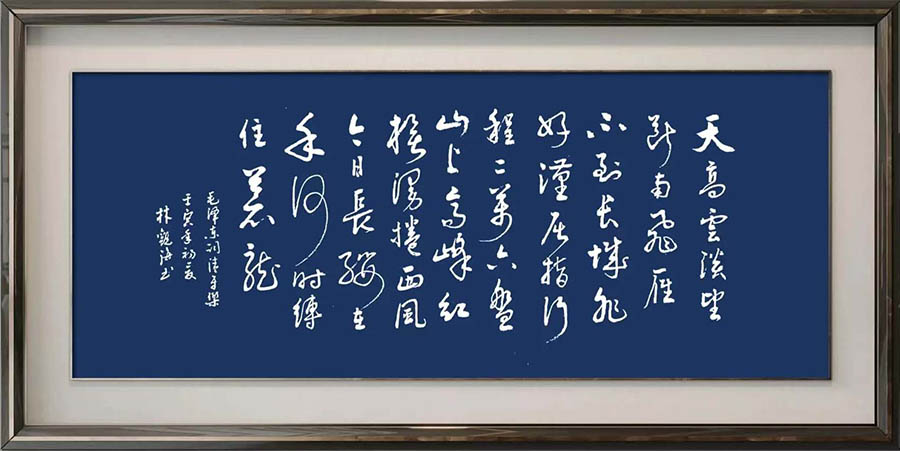 天高雲淡望
斷南飛雁
不到长城非
好漢屈指行
程二萬六盤
山上高峰红
旗漫捲西風
今日長纓在
手何时縛
住蒼龍
毛澤东词清平樂
壬寅年初夏
林觀海书